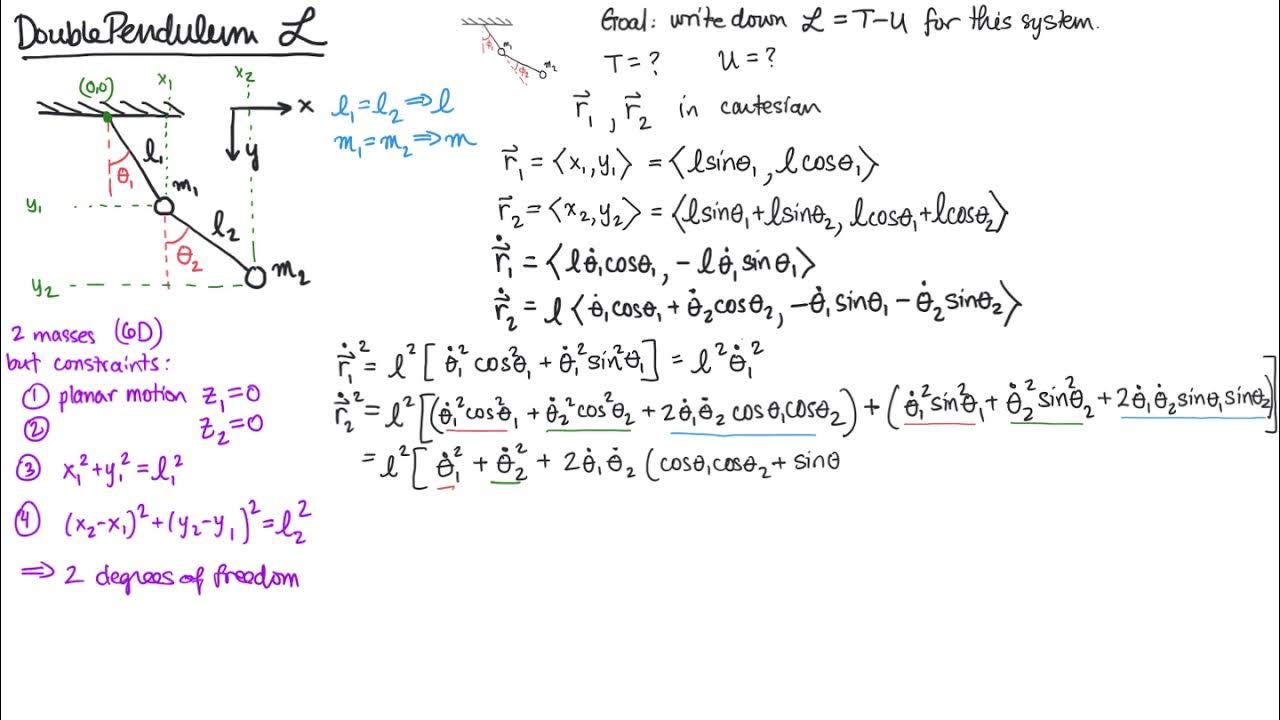 Double Pendulum ℒ
(0,0) x₁ x₂
x
y
l₁
θ₁
m₁
y₁
l₂
θ₂
m₂
y₂
l₁ = l₂ ⇒ l
m₁ = m₂ ⇒ m
2 masses (6D)
but constraints:
① planar motion z₁ = 0
② z₂ = 0
③ x₁² + y₁² = l₁²
④ (x₂ - x₁)² + (y₂ - y₁)² = l₂²
⇒ 2 degrees of freedom
θ₁ m₁
θ₂ m₂
Goal: write down ℒ = T - U for this system.
T = ? U = ?
r⃗₁, r⃗₂ in cartesian
r⃗₁ = ⟨x₁, y₁⟩ = ⟨l sinθ₁, l cosθ₁⟩
r⃗₂ = ⟨x₂, y₂⟩ = ⟨l sinθ₁ + l sinθ₂, l cosθ₁ + l cosθ₂⟩
ṙ⃗₁ = ⟨l θ̇₁ cosθ₁, - l θ̇₁ sinθ₁⟩
ṙ⃗₂ = l ⟨θ̇₁ cosθ₁ + θ̇₂ cosθ₂, - θ̇₁ sinθ₁ - θ̇₂ sinθ₂⟩
ṙ⃗₁² = l² [θ̇₁² cos²θ₁ + θ̇₁² sin²θ₁] = l² θ̇₁²
ṙ⃗₂² = l² [(θ̇₁² cos²θ₁ + θ̇₂² cos²θ₂ + 2θ̇₁θ̇₂ cosθ₁ cosθ₂) + (θ̇₁² sin²θ₁ + θ̇₂² sin²θ₂ + 2θ̇₁θ̇₂ sinθ₁ sinθ₂)]
= l² [θ̇₁² + θ̇₂² + 2θ̇₁θ̇₂ (cosθ₁ cosθ₂ + sinθ